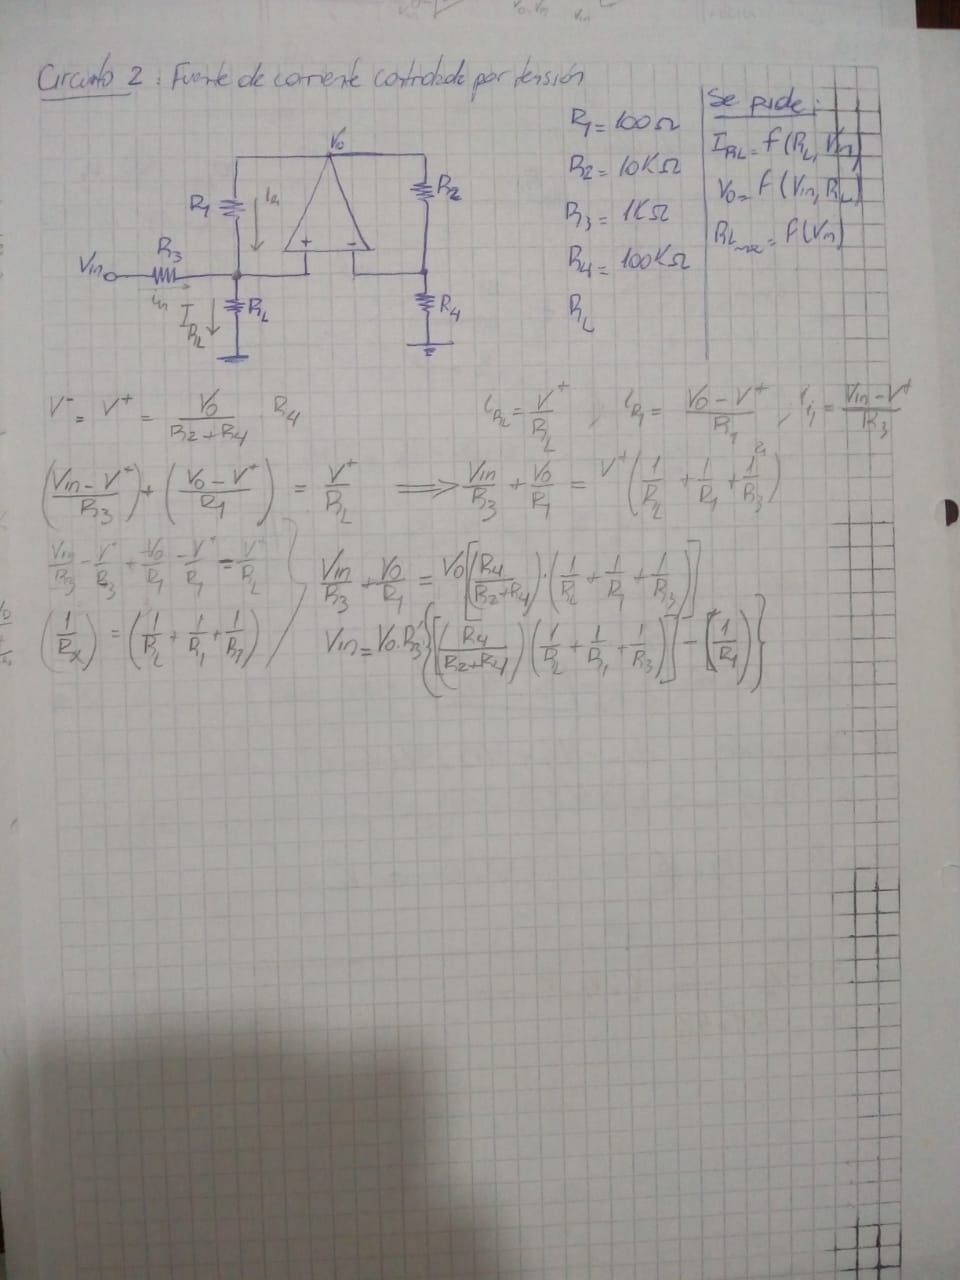 Circuito 2: Fuente de corriente controlada por tensión
Vo
R1
iR1
R2
+ -
Vin
R3
iin
IRL
RL
R4
R1 = 100Ω
R2 = 10KΩ
R3 = 1KΩ
R4 = 100KΩ
RL
Se pide:
IRL = f(RL, Vin)
Vo = f(Vin, RL)
RLmax = f(Vin)
V⁻ = V⁺ = Vo/(R2+R4) R4
iRL = V⁺/RL , iR1 = (Vo - V⁺)/R1 , ii = (Vin - V⁺)/R3
((Vin - V⁺)/R3) + ((Vo - V⁺)/R1) = V⁺/RL ⟹ Vin/R3 + Vo/R1 = V⁺(1/RL + 1/R1 + 1/R3)
Vin/R3 - V⁺/R3 + Vo/R1 - V⁺/R1 = V⁺/RL
Vin/R3 + Vo/R1 = Vo[(R4/(R2+R4))·(1/RL + 1/R1 + 1/R3)]
(1/Rx) = (1/RL + 1/R1 + 1/R3)
Vin = Vo·R3{[(R4/(R2+R4))(1/RL + 1/R1 + 1/R3)] - (1/R1)}